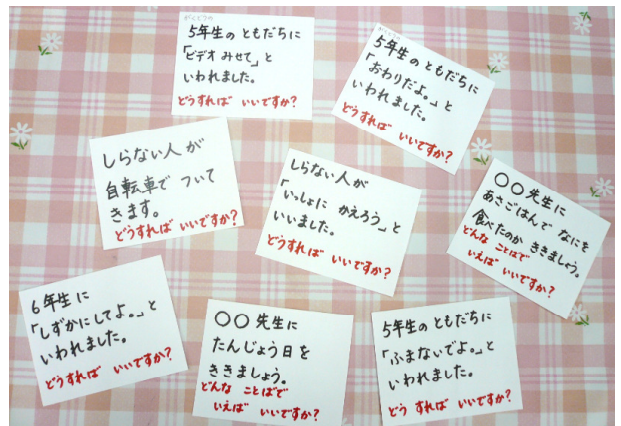 がくどうの
5年生の ともだちに
「ビデオ みせて」と
いわれました。
どうすれば いいですか?
5年生の ともだちに
「おわりだよ。」と
いわれました。
どうすれば いいですか?
しらない人が
自転車で ついて
きます。
どうすれば いいですか?
しらない人が
「いっしょに かえろう」と
いいました。
どうすれば いいですか?
〇〇先生に
あさごはんで なにを
食べたのか ききましょう。
どんな ことばで
いえば いいですか?
6年生に
「しずかにしてよ。」と
いわれました。
どうすれば いいですか?
〇〇先生に
たんじょう日を
ききましょう。
どんな ことばで
いえば いいですか?
5年生の ともだちに
「ふまないでよ。」と
いわれました。
どう すれば いいですか?